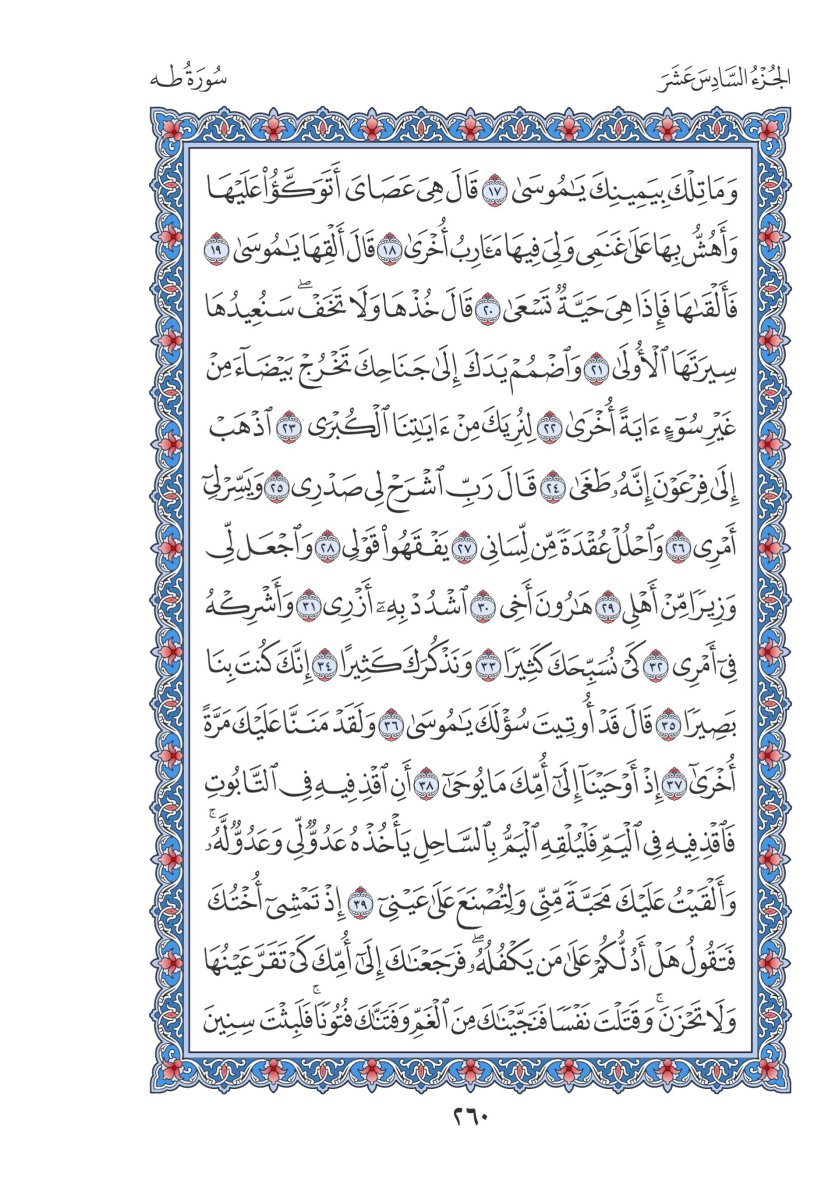 الجُزْءُ السَّادِسَ عَشَرَ
سُورَةُ طه
وَمَا تِلْكَ بِيَمِينِكَ يَٰمُوسَىٰ ١٧ قَالَ هِيَ عَصَايَ أَتَوَكَّؤُا۟ عَلَيْهَا
وَأَهُشُّ بِهَا عَلَىٰ غَنَمِي وَلِيَ فِيهَا مَـَٔارِبُ أُخْرَىٰ ١٨ قَالَ أَلْقِهَا يَٰمُوسَىٰ ١٩
فَأَلْقَىٰهَا فَإِذَا هِيَ حَيَّةٌ تَسْعَىٰ ٢٠ قَالَ خُذْهَا وَلَا تَخَفْۖ سَنُعِيدُهَا
سِيرَتَهَا ٱلْأُولَىٰ ٢١ وَٱضْمُمْ يَدَكَ إِلَىٰ جَنَاحِكَ تَخْرُجْ بَيْضَآءَ مِنْ
غَيْرِ سُوٓءٍ ءَايَةً أُخْرَىٰ ٢٢ لِنُرِيَكَ مِنْ ءَايَٰتِنَا ٱلْكُبْرَى ٢٣ ٱذْهَبْ
إِلَىٰ فِرْعَوْنَ إِنَّهُۥ طَغَىٰ ٢٤ قَالَ رَبِّ ٱشْرَحْ لِي صَدْرِي ٢٥ وَيَسِّرْ لِيٓ
أَمْرِي ٢٦ وَٱحْلُلْ عُقْدَةً مِّن لِّسَانِي ٢٧ يَفْقَهُوا۟ قَوْلِي ٢٨ وَٱجْعَل لِّي
وَزِيرًا مِّنْ أَهْلِي ٢٩ هَٰرُونَ أَخِي ٣٠ ٱشْدُدْ بِهِۦٓ أَزْرِي ٣١ وَأَشْرِكْهُ
فِيٓ أَمْرِي ٣٢ كَيْ نُسَبِّحَكَ كَثِيرًا ٣٣ وَنَذْكُرَكَ كَثِيرًا ٣٤ إِنَّكَ كُنتَ بِنَا
بَصِيرًا ٣٥ قَالَ قَدْ أُوتِيتَ سُؤْلَكَ يَٰمُوسَىٰ ٣٦ وَلَقَدْ مَنَنَّا عَلَيْكَ مَرَّةً
أُخْرَىٰٓ ٣٧ إِذْ أَوْحَيْنَآ إِلَىٰٓ أُمِّكَ مَا يُوحَىٰٓ ٣٨ أَنِ ٱقْذِفِيهِ فِي ٱلتَّابُوتِ
فَٱقْذِفِيهِ فِي ٱلْيَمِّ فَلْيُلْقِهِ ٱلْيَمُّ بِٱلسَّاحِلِ يَأْخُذْهُ عَدُوٌّ لِّي وَعَدُوٌّ لَّهُۥۚ
وَأَلْقَيْتُ عَلَيْكَ مَحَبَّةً مِّنِّي وَلِتُصْنَعَ عَلَىٰ عَيْنِيٓ ٣٩ إِذْ تَمْشِيٓ أُخْتُكَ
فَتَقُولُ هَلْ أَدُلُّكُمْ عَلَىٰ مَن يَكْفُلُهُۥۖ فَرَجَعْنَٰكَ إِلَىٰٓ أُمِّكَ كَيْ تَقَرَّ عَيْنُهَا
وَلَا تَحْزَنَۚ وَقَتَلْتَ نَفْسًا فَنَجَّيْنَٰكَ مِنَ ٱلْغَمِّ وَفَتَنَّٰكَ فُتُونًاۚ فَلَبِثْتَ سِنِينَ
٢٦٠